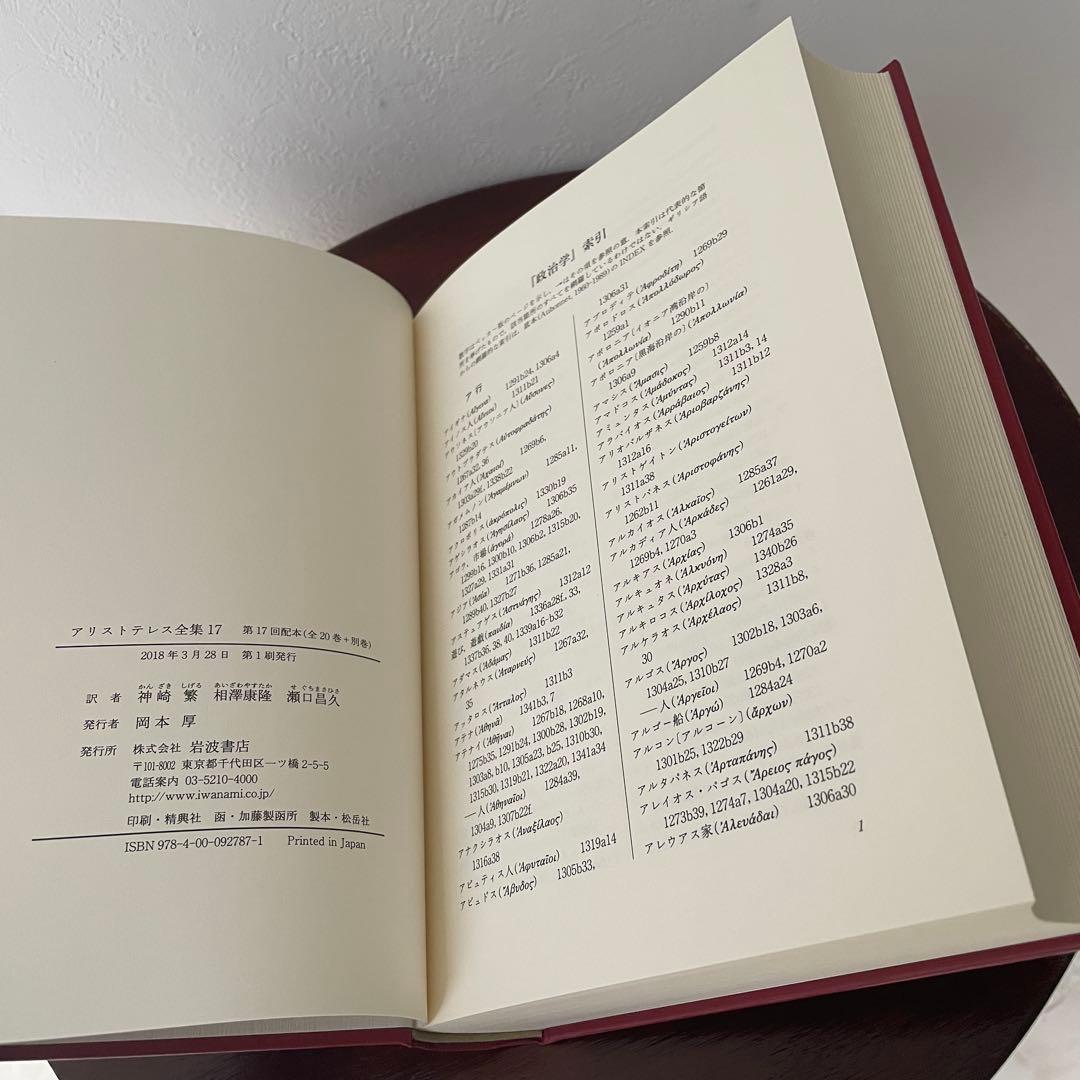 アリストテレス全集 17　第17回配本(全20巻+別巻)
2018年3月28日　第1刷発行
かんざき しげる　あいざわやすたか　せぐちまさひさ
訳者　神崎 繁　相澤康隆　瀬口昌久
発行者　岡本 厚
発行所　株式会社 岩波書店
〒101-8002 東京都千代田区一ツ橋2-5-5
電話案内 03-5210-4000
http://www.iwanami.co.jp/
印刷・精興社　函・加藤製函所　製本・松岳社
ISBN 978-4-00-092787-1　Printed in Japan
『政治学』索引
数字はベッカー版のページを示し，→はその項を参照の意．本索引は代表的な箇
所を挙げたもので，該当箇所のすべてを網羅しているわけではない．ギリシア語
からの網羅的な索引は，底本(Aubonnet, 1960-1989)の INDEX を参照．
ア 行
アイギナ(Αἴγινα)　1291b24, 1306a4
アイノス人(Αἴνιοι)　1311b21
アウソネス〔アウソニア人〕(Αὔσονες)
1329b20
アウトプラダテス(Αὐτοφραδάτης)
1267a32, 36
アカイア人(Ἀχαιοί)　1269b6,
1303a29f., 1338b22
アガメムノン(Ἀγαμέμνων)　1285a11,
1287b14
アクロポリス(ἀκρόπολις)　1330b19
アゲシラオス(Ἀγησίλαος)　1306b35
アゴラ、市場(ἀγορά)　1278a26,
1299b16, 1300b10, 1306b2, 1315b20,
1327a29, 1331a31
アジア(Ἀσία)　1271b36, 1285a21,
1289b40, 1327b27
アステュアゲス(Ἀστυάγης)　1312a12
遊び、遊戯(παιδία)　1336a28f., 33,
1337b36, 38, 40, 1339a16-b32
アダマス(Ἀδάμας)　1311b22
アタルネウス(Ἀταρνεύς)　1267a32,
35
アッタロス(Ἄτταλος)　1311b3
アテナ(Ἀθηνᾶ)　1341b3, 7
アテナイ(Ἀθῆναι)　1267b18, 1268a10,
1275b35, 1291b24, 1300b28, 1302b19,
1303a8, b10, 1305a23, b25, 1310b30,
1315b30, 1319b21, 1322a20, 1341a34
──人(Ἀθηναῖοι)　1284a39,
1304a9, 1307b22f.
アナクシラオス(Ἀναξίλαος)
1316a38
アピュティス人(Ἀφυταῖοι)　1319a14
アビュドス(Ἄβυδος)　1305b33,
1306a31
アプロディテ(Ἀφροδίτη)　1269b29
アポロドロス(Ἀπολλόδωρος)
1259a1
アポロニア〔イオニア湾沿岸の〕
(Ἀπολλωνία)　1290b11
アポロニア〔黒海沿岸の〕(Ἀπολλωνία)
1306a9
アマシス(Ἄμασις)　1259b8
アマドコス(Ἀμάδοκος)　1312a14
アミュンタス(Ἀμύντας)　1311b3, 14
アラバイオス(Ἀρράβαιος)　1311b12
アリオバルザネス(Ἀριοβαρζάνης)
1312a16
アリストゲイトン(Ἀριστογείτων)
1311a38
アリストパネス(Ἀριστοφάνης)
1262b11
アルカイオス(Ἀλκαῖος)　1285a37
アルカディア人(Ἀρκάδες)　1261a29,
1269b4, 1270a3
アルキアス(Ἀρχίας)　1306b1
アルキュオネ(Ἀλκυόνη)　1274a35
アルキュタス(Ἀρχύτας)　1340b26
アルキロコス(Ἀρχίλοχος)　1328a3
アルケラオス(Ἀρχέλαος)　1311b8,
30
アルゴス(Ἄργος)　1302b18, 1303a6,
1304a25, 1310b27
──人(Ἀργεῖοι)　1269b4, 1270a2
アルゴー船(Ἀργώ)　1284a24
アルコン〔アルコーン〕(ἄρχων)
1301b25, 1322b29
アルタパネス(Ἀρταπάνης)　1311b38
アレイオス・パゴス(Ἄρειος πάγος)
1273b39, 1274a7, 1304a20, 1315b22
アレウアス家(Ἀλευάδαι)　1306a30
1